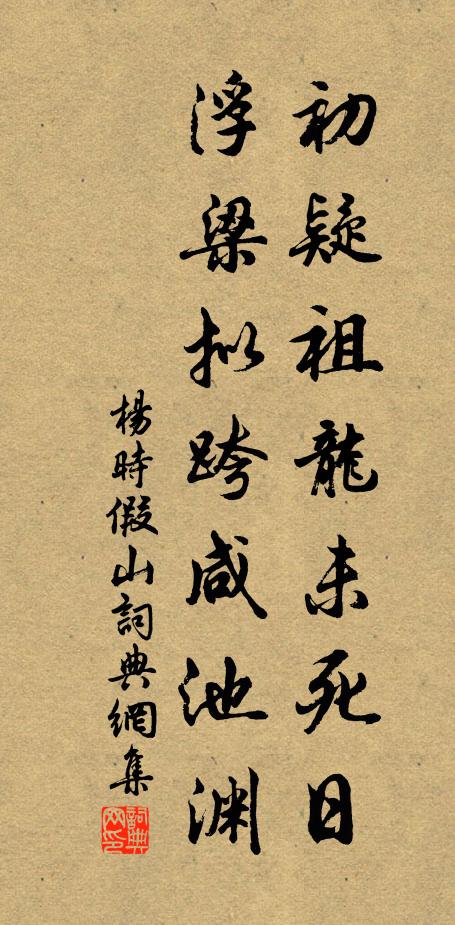 初疑祖龍未死日
浮梁拟跨咸池渊
楊時假山詞典網集
詞典網印